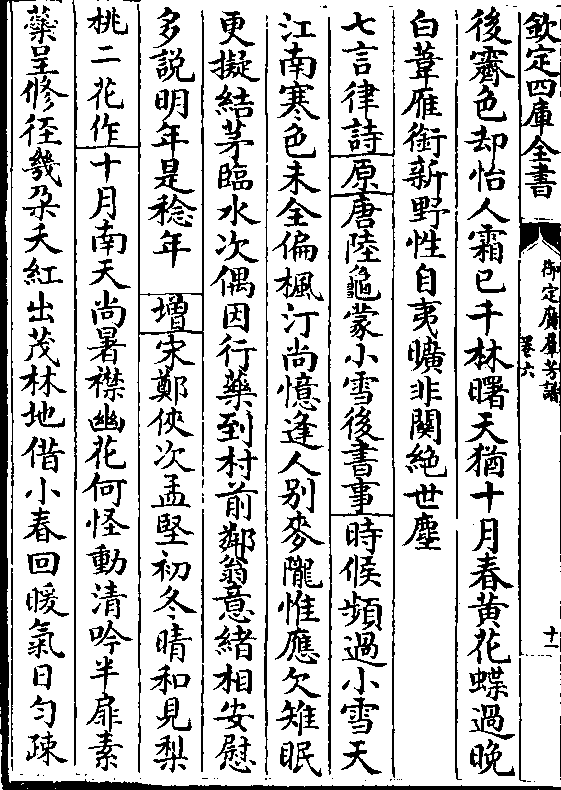 欽定四庫全書
御定廣羣芳譜
卷六
十一
後霽色却怡人霜已千林曙天猶十月春黄花蝶過晚
白葦雁銜新野性自夷曠非關絶世塵
七言律詩原唐陸龜蒙小雪後書事時候頻過小雪天
江南寒色未全偏楓汀尚憶逢人别麥隴惟應欠雉眠
更擬結茅臨水次偶因行藥到村前鄰翁意緒相安慰
多説明年是稔年 增宋鄭俠次孟堅初冬晴和見梨
桃二花作十月南天尚暑襟幽花何怪動清吟半扉素
蘂呈修徑幾朶夭紅出茂林地借小春回暖氣日匀疎